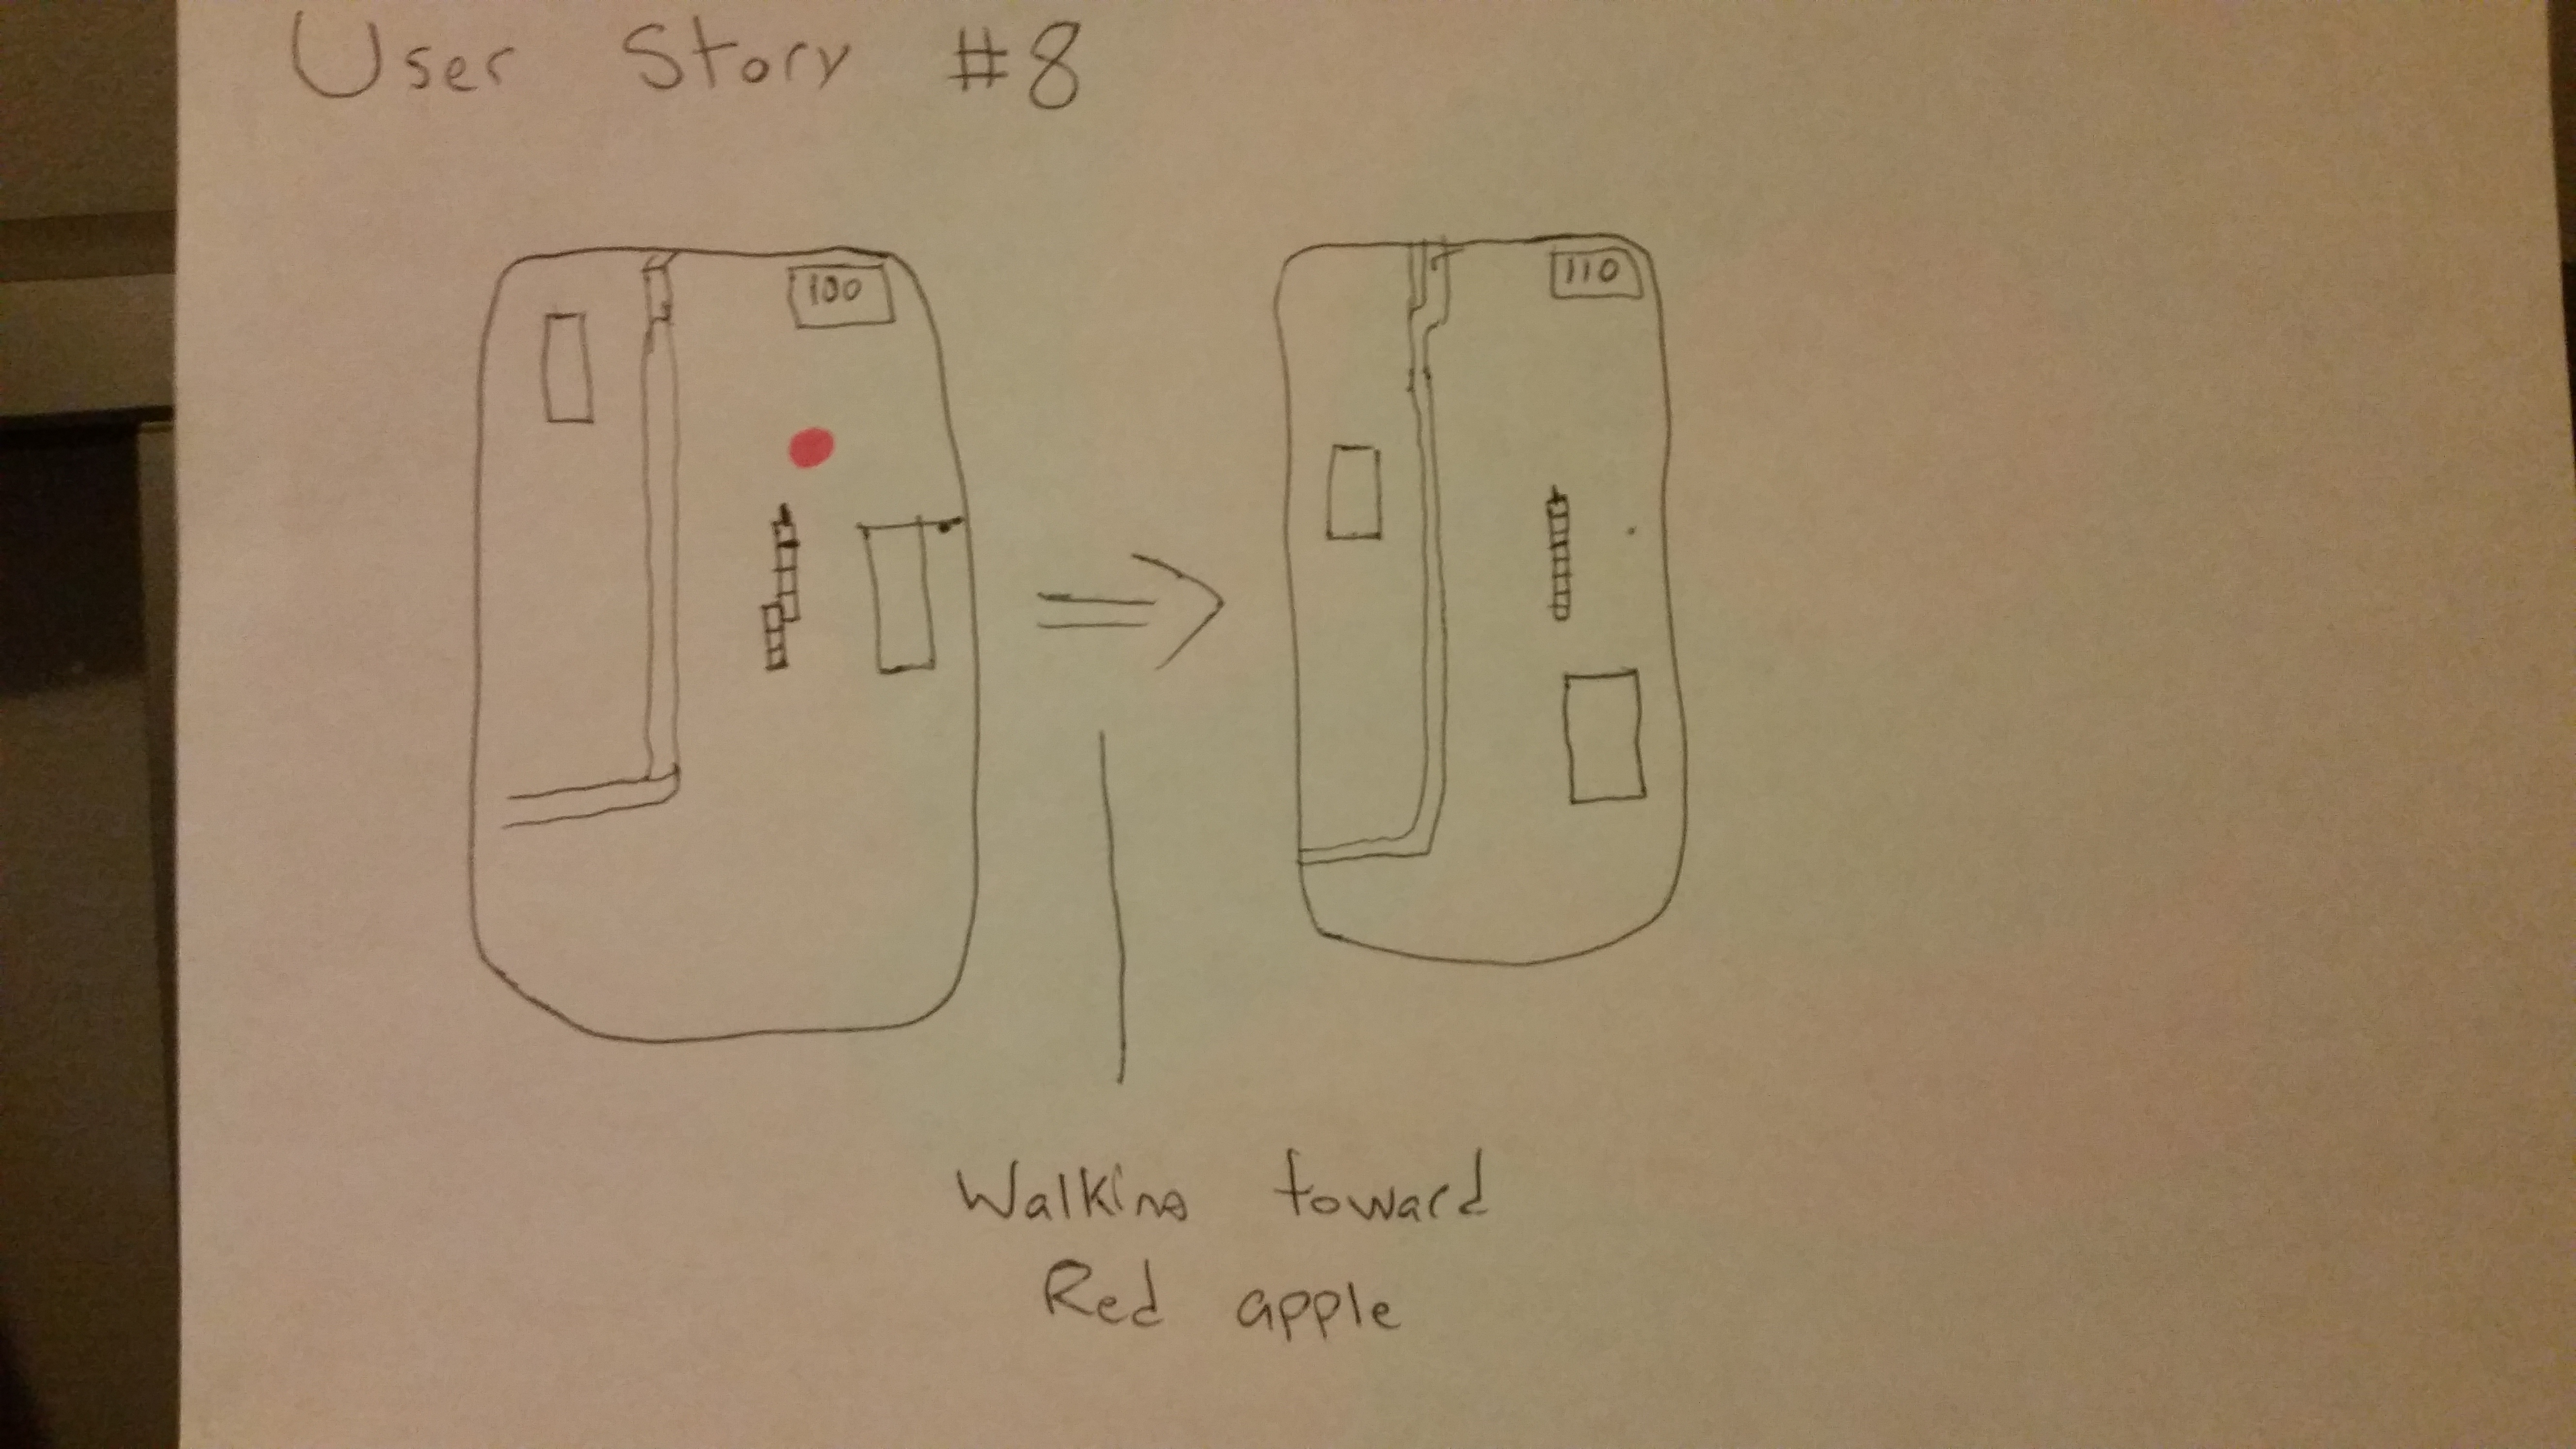 User Story #8
100
110
Walking toward
Red apple